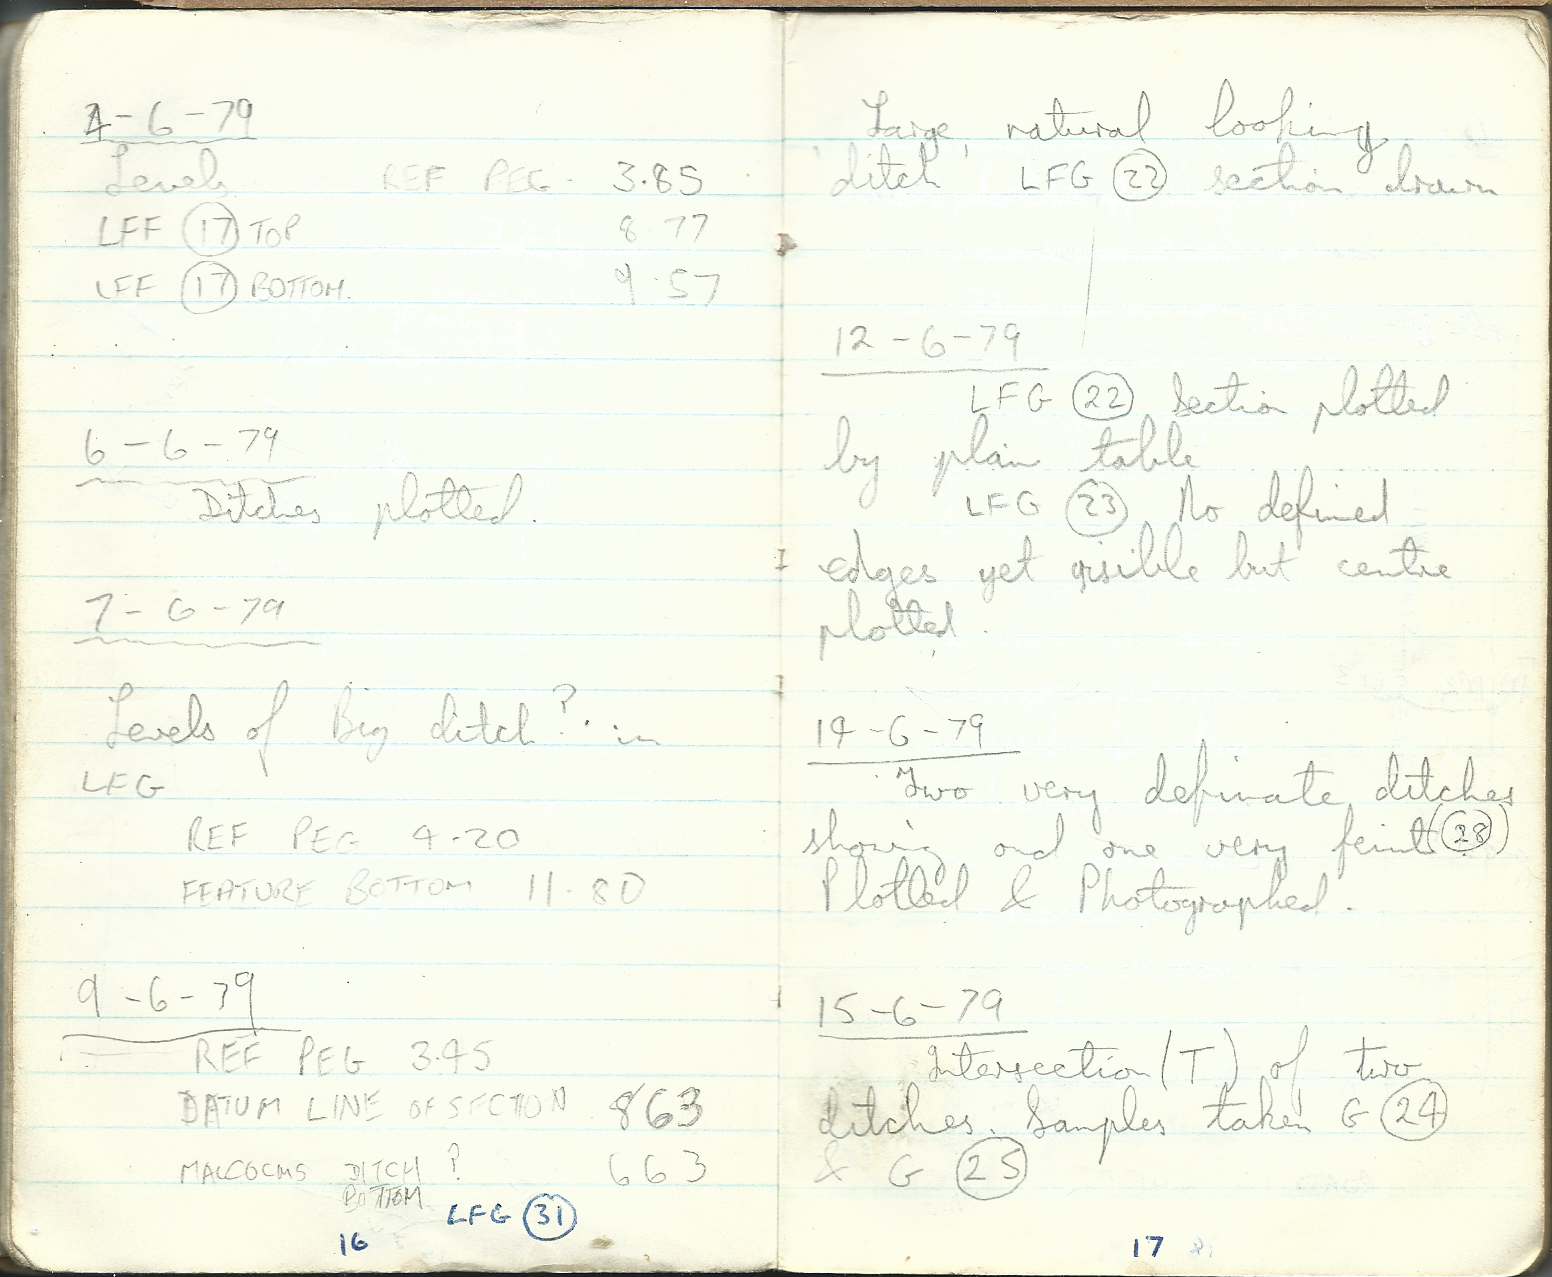 4-6-79
Levels REF PEG 3.85
LFF (17) TOP 8.77
LFF (17) BOTTOM. 9.57
6-6-79
Ditches plotted.
7-6-79
Levels of Big ditch? in
LFG
REF PEG 4.20
FEATURE BOTTOM 11.80
9-6-79
REF PEG 3.45
DATUM LINE OF SECTION 863
MALCOLMS DITCH ? 663
BOTTOM
LFG (31)
16
Large, natural looking
'ditch' LFG (22) section drawn
12-6-79
LFG (22) Section plotted
by plain table
LFG (23) No defined
edges yet visible but centre
plotted.
14-6-79
Two very definate ditches
showing and one very feint ((28))
Plotted & Photographed.
15-6-79
Intersection (T) of two
ditches. Samples taken G (24)
& G (25)
17